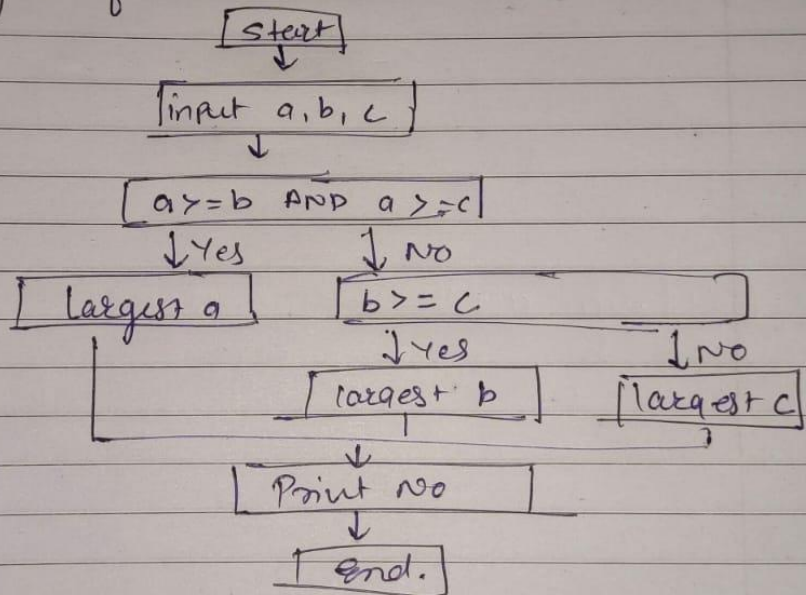 Start
input a, b, c
a >= b AND a >= c
Yes No
largest a b >= c
Yes No
largest b largest c
Print No
End.